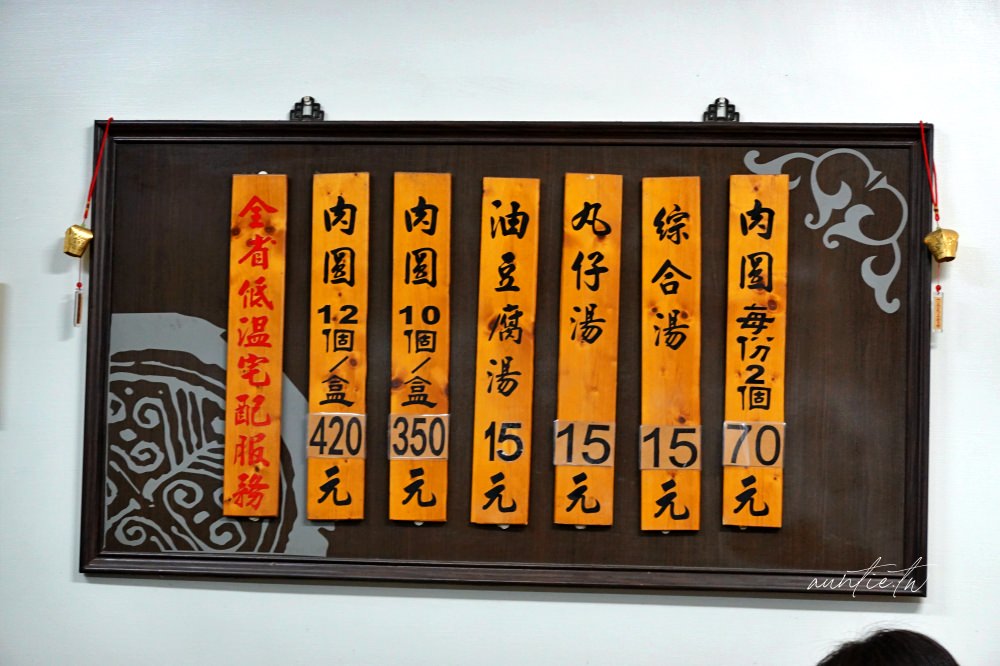 肉圓每份2個70元
綜合湯15元
丸仔湯15元
油豆腐湯15元
肉圓10個/盒350元
肉圓12個/盒420元
全省低溫宅配服務
auntie.tn